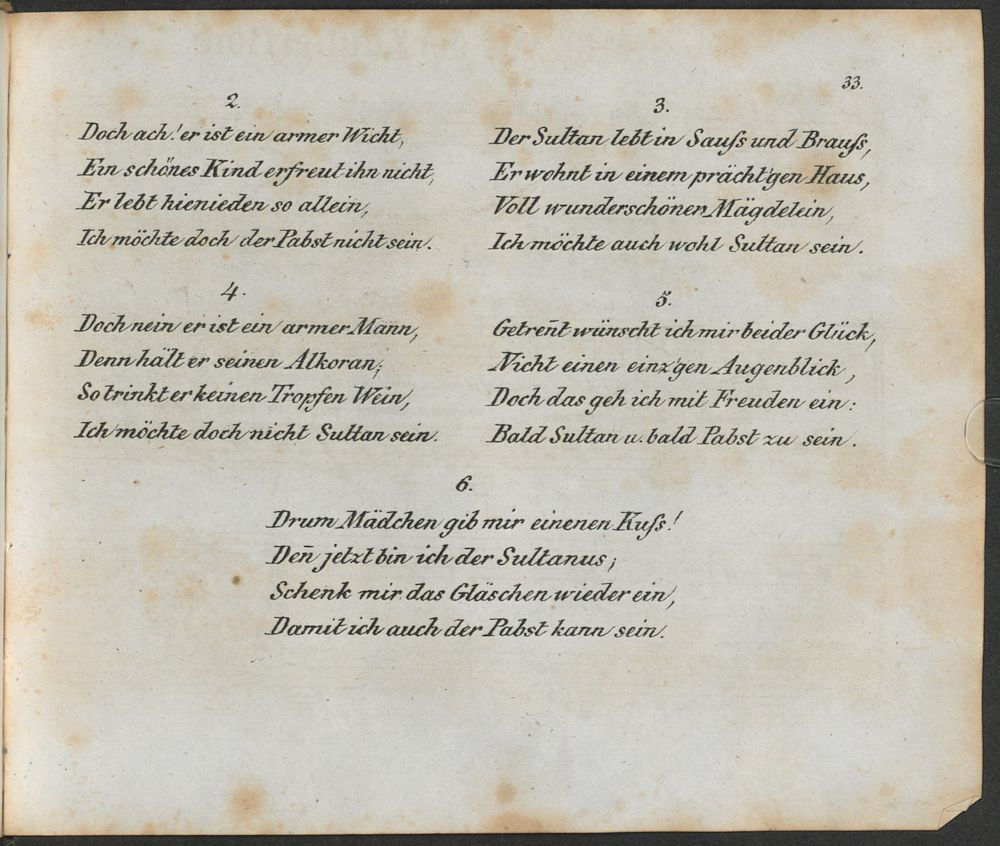 33.
2.
Doch ach! er ist ein armer Wicht,
Ein schönes Kind erfreut ihn nicht,
Er lebt hienieden so allein,
Ich möchte doch der Pabst nicht sein.
3.
Der Sultan lebt in Sauſs und Brauſs,
Er wohnt in einem prächt'gen Haus,
Voll wunderschönen Mägdelein,
Ich möchte auch wohl Sultan sein.
4.
Doch nein er ist ein armer Mann,
Denn hält er seinen Alkoran;
So trinkt er keinen Tropfen Wein,
Ich möchte doch nicht Sultan sein.
5.
Getren̄t wünscht ich mir beider Glück,
Nicht einen einz'gen Augenblick,
Doch das geh ich mit Freuden ein:
Bald Sultan u. bald Pabst zu sein.
6.
Drum Mädchen gib mir einenen Kuſs!
Den̄ jetzt bin ich der Sultanus;
Schenk mir das Gläschen wieder ein,
Damit ich auch der Pabst kann sein.